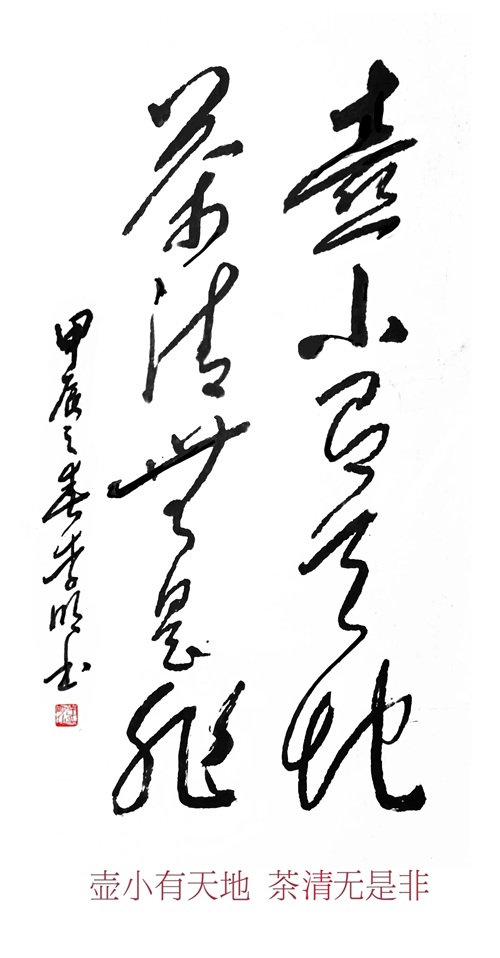 壺小有天地
茶清無是非
甲辰之春李明书
壶小有天地 茶清无是非